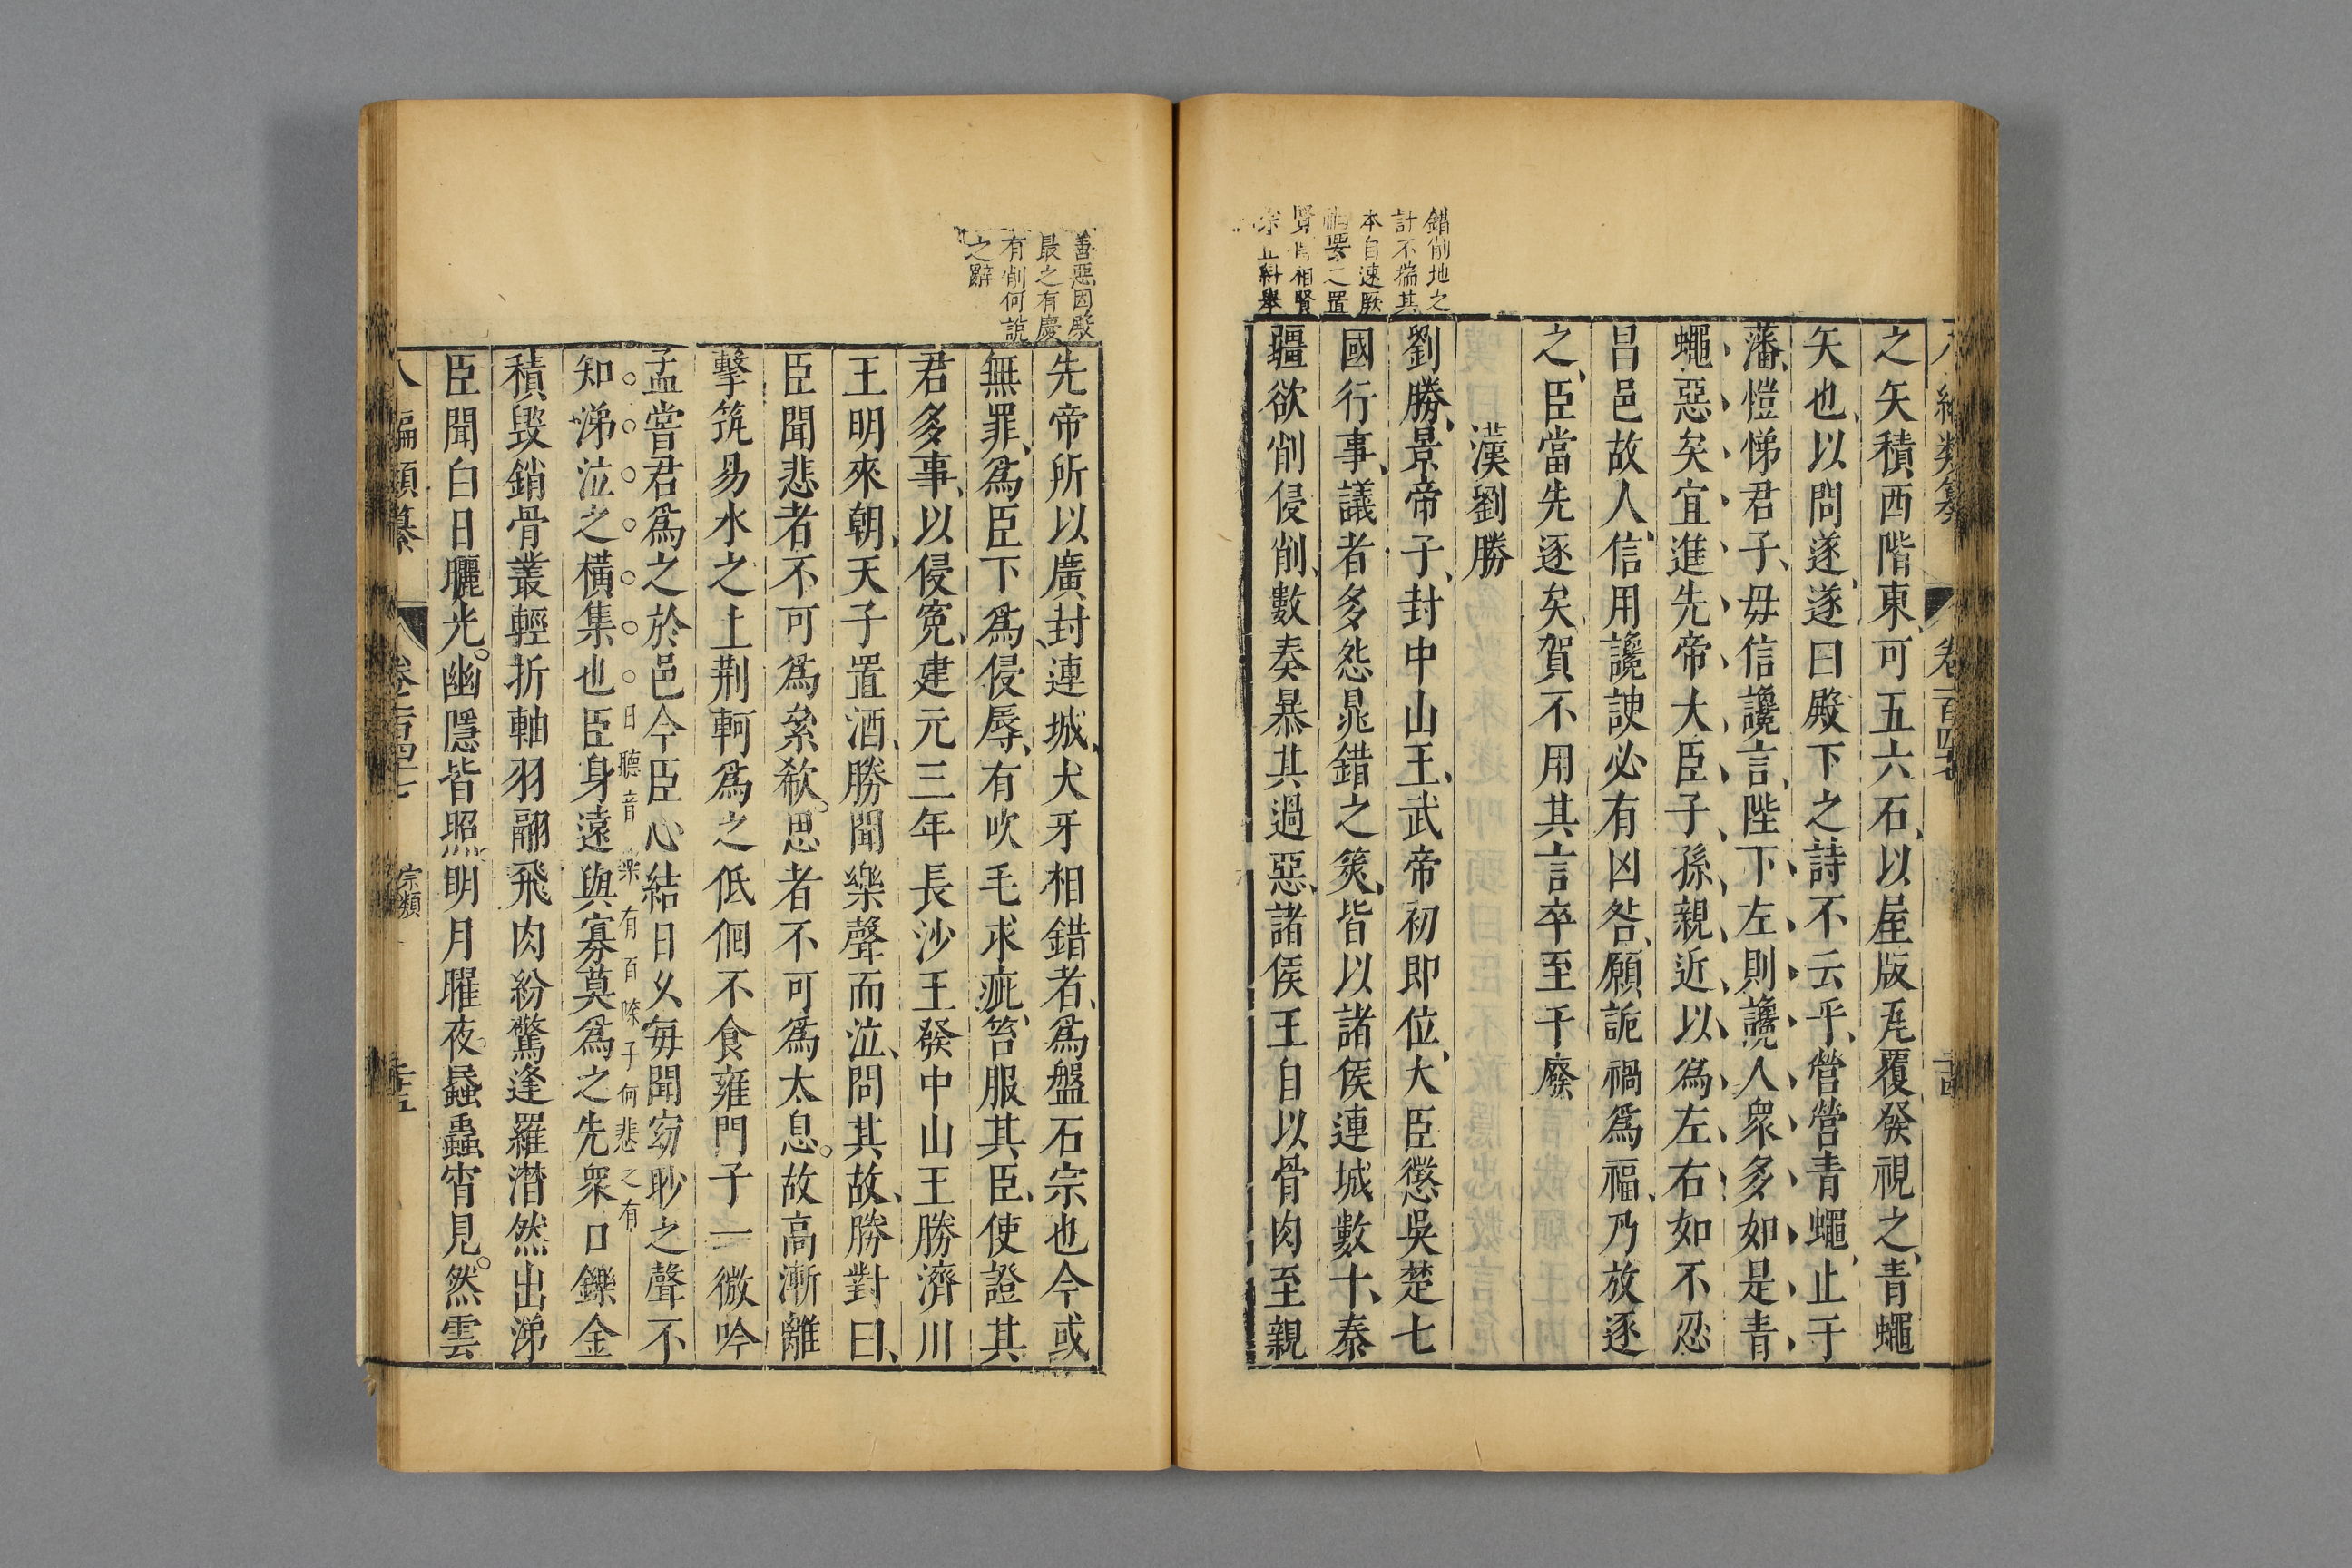 錯削地之
計不揣其
本自速厥
禍要之置
賢相賢
八編類纂 卷一百四十七
之矢積西階東可五六石以屋版瓦覆發視之青蠅
矢也以問遂遂曰殿下之詩不云乎營營青蠅止于
藩愷悌君子毋信讒言陛下左則讒人衆多如是青
蠅惡矣宜進先帝大臣子孫親近以爲左右如不忍
昌邑故人信用讒諛必有凶咎願詭禍爲福乃放逐
之臣當先逐矣賀不用其言卒至于廢
漢劉勝
劉勝景帝子封中山王武帝初即位大臣懲吳楚七
國行事議者多怨鼂錯之筞皆以諸侯連城數十泰
疆欲削侵削數奏暴其過惡諸侯王自以骨肉至親
善惡因殿
最之有慶
有削何說
之辭
先帝所以廣封連城犬牙相錯者爲盤石宗也今或
無罪爲臣下爲侵辱有吹毛求疵笞服其臣使證其
君多事以侵寃建元三年長沙王發中山王勝濟川
王明來朝天子置酒勝聞樂聲而泣問其故勝對曰
臣聞悲者不可爲絫欷思者不可爲太息故高漸離
擊筑易水之土荆軻爲之低佪不食雍門子一微吟
孟嘗君爲之於邑今臣心結日乆每聞窈眇之聲不
日聽音樂有百除子何悲之有
知涕泣之橫集也臣身遠與寡莫爲之先衆口鑠金
積毀銷骨叢輕折軸羽翮飛肉紛驚逢羅潸然出涕
臣聞白日曬光幽隱皆照明月曜夜蟁蝱宵見然雲
八編類纂 卷一百四十七 宗類 二十五